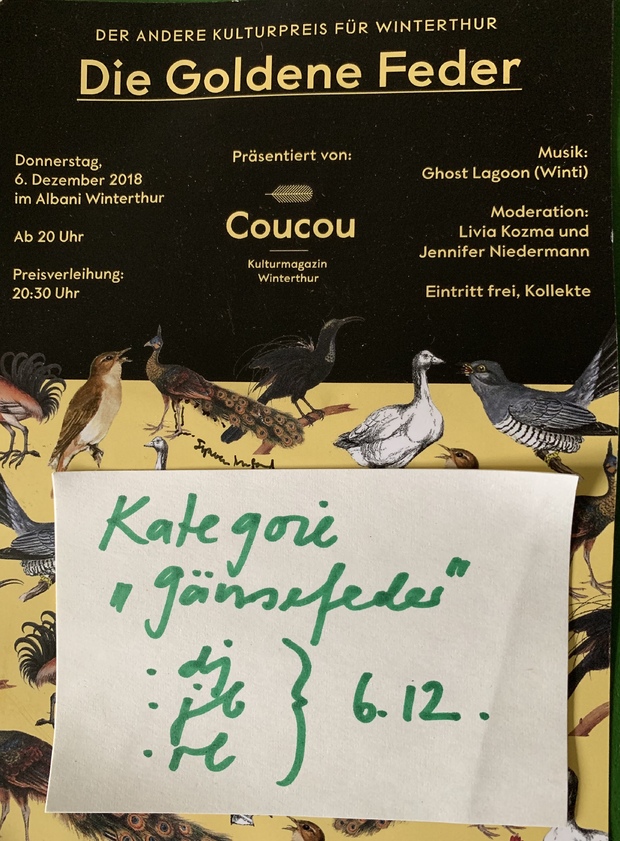 DER ANDERE KULTURPREIS FÜR WINTERTHUR
Die Goldene Feder
Donnerstag,
6. Dezember 2018
im Albani Winterthur
Ab 20 Uhr
Preisverleihung:
20:30 Uhr
Präsentiert von:
Coucou
Kulturmagazin
Winterthur
Musik:
Ghost Lagoon (Winti)
Moderation:
Livia Kozma und
Jennifer Niedermann
Eintritt frei, Kollekte
Kategorie
„Gänsefeder"
· dj
· jb
· rl
6.12.